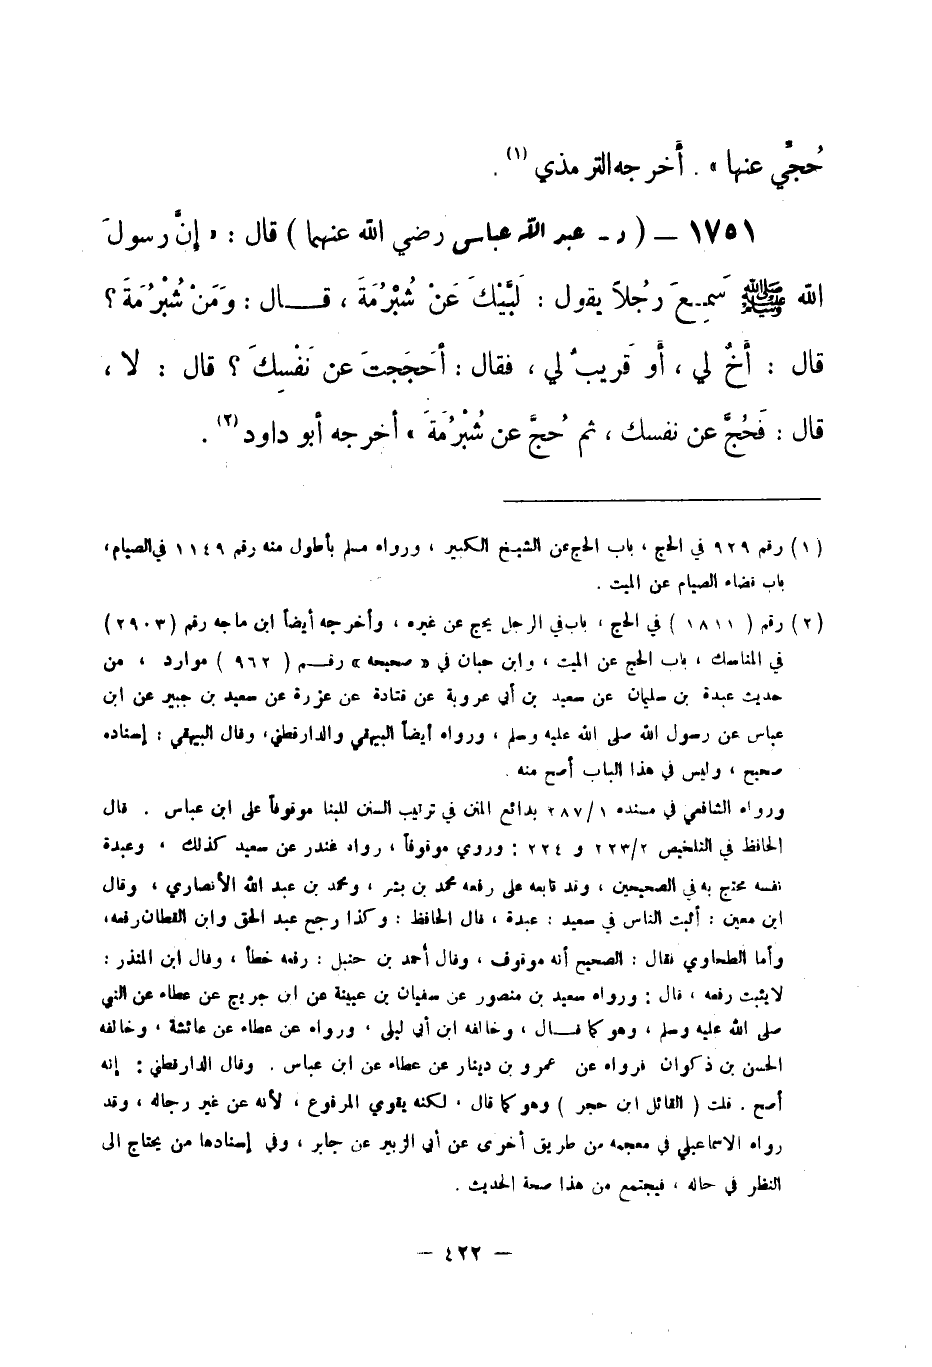 حُجِّي عنها » . أَخرجه الترمذي (١) .
١٧٥١ – ( د – عبد الله عباس رضي الله عنهما ) قال : « إِنَّ رسولَ
الله ﷺ سَمِعَ رَجُلاً يقول : لَبَّيْكَ عَنْ شُبْرُمَةَ ، قـــال : وَمَنْ شُبْرُمَةَ ؟
قال : أَخٌ لي ، أَو قَريبٌ لي ، فقال : أَحَجَجتَ عن نَفْسِكَ ؟ قال : لا ،
قال : فَحُجَّ عن نفسك ، ثم حُجَّ عن شُبْرُمَةَ » أخرجه أبو داود (٢) .
(١) رقم ٩٢٩ في الحج ، باب الحج عن الشيخ الكبير ، ورواه مسلم بأطول منه رقم ١١٤٩ في الصيام ،
باب قضاء الصيام عن الميت .
(٢) رقم ( ١٨١١ ) في الحج ، باب في الرجل يحج عن غيره ، وأخرجه أيضاً ابن ماجه رقم (٢٩٠٣)
في المناسك ، باب الحج عن الميت ، وابن حبان في « صحيحه » رقـم ( ٩٦٢ ) موارد ، من
حديث عبدة بن سليمان عن سعيد بن أبي عروبة عن قتادة عن عزرة عن سعيد بن جبير عن ابن
عباس عن رسول الله صلى الله عليه وسلم ، ورواه أيضاً البيهقي والدارقطني ، وقال البيهقي : إسناده
صحيح ، وليس في هذا الباب أصح منه .
ورواه الشافعي في مسنده ٢٨٧/١ بدائع المنن في ترتيب السنن للبنا موقوفاً على ابن عباس . قال
الحافظ في التلخيص ٢٢٣/٢ و ٢٢٤ : وروي موقوفاً ، رواه غندر عن سعيد كذلك ، وعبدة
نفسه محتج به في الصحيحين ، وقد تابعه على رفعه محمد بن بشر ، ومحمد بن عبد الله الأنصاري ، وقال
ابن معين : أثبت الناس في سعيد : عبدة ، قال الحافظ : وكذا رجح عبد الحق وابن القطان رفعه ،
وأما الطحاوي فقال : الصحيح أنه موقوف ، وقال أحمد بن حنبل : رفعه خطأ ، وقال ابن المنذر :
لايثبت رفعه ، قال : ورواه سعيد بن منصور عن سفيان بن عيينة عن ابن جريج عن عطاء عن النبي
صلى الله عليه وسلم ، وهو كما قـــال ، وخالفه ابن أبي ليلى ، ورواه عن عطاء عن عائشة ، وخالفه
الحسن بن ذكوان فرواه عن عمرو بن دينار عن عطاء عن ابن عباس . وقال الدارقطني : إنه
أصح . قلت ( القائل ابن حجر ) وهو كما قال ، لكنه يقوي المرفوع ، لأنه عن غير رجاله ، وقد
رواه الاسماعيلي في معجمه من طريق أخرى عن أبي الزبير عن جابر ، وفي إسنادها من يحتاج الى
النظر في حاله ، فيجتمع من هذا صحة الحديث .
– ٤٢٢ –